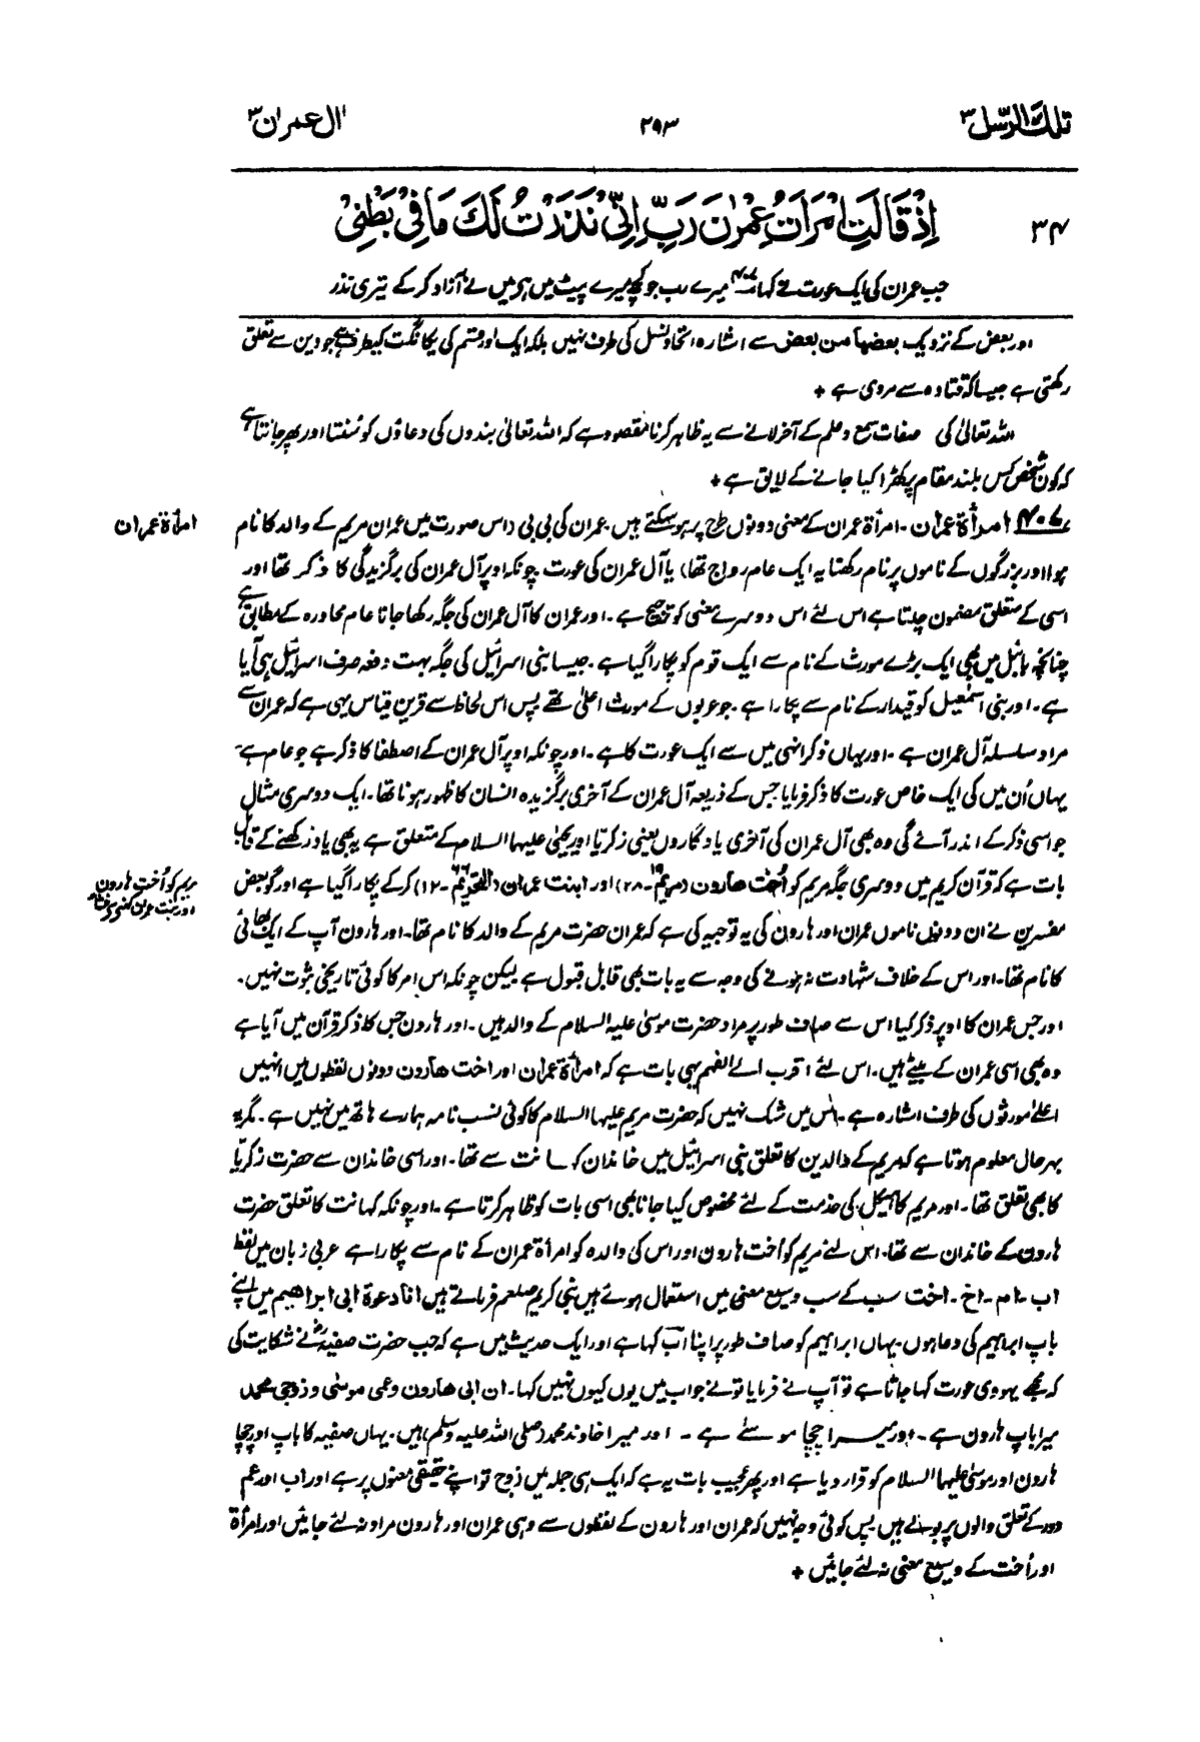 تلك الرسل ٣
٢٩٣
اٰل عمران ٣
٣٤
اِذْ قَالَتِ امْرَاَتُ عِمْرٰنَ رَبِّ اِنِّیْ نَذَرْتُ لَكَ مَا فِیْ بَطْنِیْ
جب عمران کی ایک عورت نے کہا میرے رب جو کچھ میرے پیٹ میں ہے میں نے آزاد کرکے تیری نذر
اور بعض کے نزدیک بعضھا من بعض سے اشارہ اتحاد نسل کی طرف نہیں بلکہ ایک اور قسم کی یگانگت کیطرف ہے جو دین سے تعلق
رکھتی ہے جیسا کہ قتادہ سے مروی ہے +
اللہ تعالیٰ کی صفات سمع و علم کے آخر لانے سے یہ ظاہر کرنا مقصود ہے کہ اللہ تعالیٰ بندوں کی دعاؤں کو سُنتا اور پھر جانتا ہے
کہ کون شخص کس بلند مقام پر کھڑا کیا جانے کے لایق ہے +
امرأة عمران ۔ امرأة عمران کے معنی دونوں طرح پر ہو سکتے ہیں۔ عمران کی بی بی (اس صورت میں عمران مریم کے والد کا نام
امرأة عمران
ہوا اور بزرگوں کے ناموں پر نام رکھنا یہ ایک عام رواج تھا) یا آل عمران کی عورت۔ چونکہ اوپر آل عمران کی برگزیدگی کا ذکر تھا اور
اسی کے متعلق مضمون چلتا ہے اس لئے اس دوسرے معنی کو ترجیح ہے۔ اور عمران کا آل عمران کی جگہ رکھا جانا عام محاورہ کے مطابق ہے
چنانچہ بائبل میں بھی ایک بڑے مورث کے نام سے ایک قوم کو پکارا گیا ہے۔ جیسا بنی اسرائیل کی جگہ بہت دفعہ صرف اسرائیل ہی آیا
ہے۔ اور بنی اسمٰعیل کو قیدار کے نام سے پکارا ہے۔ جو عربوں کے مورث اعلیٰ تھے پس اس لحاظ سے قرین قیاس یہی ہے کہ عمران سے
مراد سلسلہ آل عمران ہے۔ اور یہاں ذکر انہی میں سے ایک عورت کا ہے۔ اور چونکہ اوپر آل عمران کے اصطفا کا ذکر ہے جو عام ہے
یہاں اُن میں کی ایک خاص عورت کا ذکر فرمایا جس کے ذریعہ آل عمران کے آخری برگزیدہ انسان کا ظہور ہونا تھا۔ ایک دوسری مثال
جو اسی ذکر کے اندر آئے گی وہ بھی آل عمران کی آخری یادگاروں یعنی زکریا اور یحییٰ علیہما السلام کے متعلق ہے یہ بھی یاد رکھنے کے قابل
بات ہے کہ قرآن کریم میں دوسری جگہ مریم کو اخت ھارون (مریم ١٩۔٢٨) اور ابنت عمران (التحریم ٦٦۔١٢) کرکے پکارا گیا ہے اور گو بعض
مریم کو اُخت ہارون
مفسرین نے ان دونوں ناموں عمران اور ہارون کی یہ توجیہ کی ہے کہ عمران حضرت مریم کے والد کا نام تھا۔ اور ہارون آپ کے ایک بھائی
کا نام تھا۔ اور اس کے خلاف شہادت نہ ہونے کی وجہ سے یہ بات بھی قابل قبول ہے لیکن چونکہ اس امر کا کوئی تاریخی ثبوت نہیں۔
اور جس عمران کا اوپر ذکر کیا اس سے صاف طور پر مراد حضرت موسیٰ علیہ السلام کے والد ہیں۔ اور ہارون جس کا ذکر قرآن میں آیا ہے
وہ بھی اسی عمران کے بیٹے ہیں۔ اس لئے اقرب الے الفہم یہی بات ہے کہ امرأة عمران اور اخت ھارون دونوں لفظوں میں انہیں
اعلےٰ مورثوں کی طرف اشارہ ہے۔ اس میں شک نہیں کہ حضرت مریم علیہا السلام کا کوئی نسب نامہ ہمارے ہاتھ میں نہیں ہے۔ مگر یہ
بہرحال معلوم ہوتا ہے کہ مریم کے والدین کا تعلق بنی اسرائیل میں خاندان کہانت سے تھا۔ اور اسی خاندان سے حضرت زکریا
کا بھی تعلق تھا۔ اور مریم کا ہیکل کی خدمت کے لئے مخصوص کیا جانا بھی اسی بات کو ظاہر کرتا ہے۔ اور چونکہ کہانت کا تعلق حضرت
ہارون کے خاندان سے تھا۔ اس لئے مریم کو اُخت ہارون اور اس کی والدہ کو امرأة عمران کے نام سے پکارا ہے عربی زبان میں لفظ
اب۔ ام۔ اخ۔ اخت سب کے سب وسیع معنی میں استعمال ہوئے ہیں نبی کریم صلعم فرماتے ہیں انا دعوة ابی ابراھیم میں اپنے
باپ ابراہیم کی دعا ہوں۔ یہاں ابراہیم کو صاف طور پر اپنا اب کہا ہے اور ایک حدیث میں ہے کہ جب حضرت صفیہؓ نے شکایت کی
کہ مجھے یہودی عورت کہا جاتا ہے تو آپ نے فرمایا تو نے جواب میں یوں کیوں نہیں کہا۔ ان ابی ھارون وعمی موسٰی وزوجی محمد
میرا باپ ہارون ہے۔ اور میرا چچا موسےٰ ہے۔ اور میرا خاوند محمد (صلی اللہ علیہ وسلم) ہیں۔ یہاں صفیہ کا باپ اور چچا
ہارون اور موسیٰ علیہما السلام کو قرار دیا ہے اور پھر عجیب بات یہ ہے کہ ایک ہی جملہ میں زوج تو اپنے حقیقی معنوں پر ہے اور اب اور عم
دور کے تعلق والوں پر بولے ہیں پس کوئی وجہ نہیں کہ عمران اور ہارون کے لفظوں سے وہی عمران اور ہارون مراد نہ لئے جائیں اور امرأة
اور اُخت کے وسیع معنی نہ لئے جائیں +